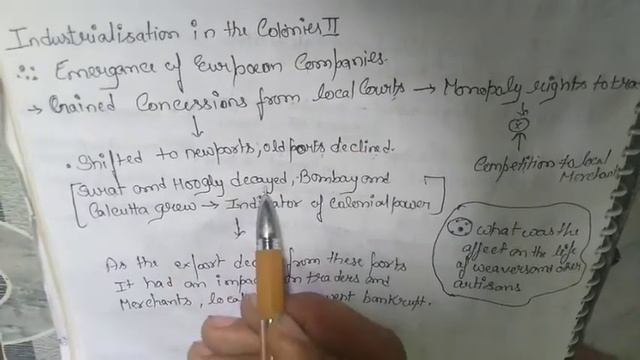 Industrialisation in the Colonies II
Emergance of Eurpaeon Companies.
→ Gained Concessions from local Courts → Monopaly rights to tra
• Shifted to newports, old ports declined.
Surat and Hoogly decayed, Bombay and
Calcutta grew → Indicator of Calonial power
Competition to local
Merchant
what was the
affect on the life
of weavers and other
artisons
As the export dec from these ports
It had an impac on traders and
Merchants, local went bankrupt.